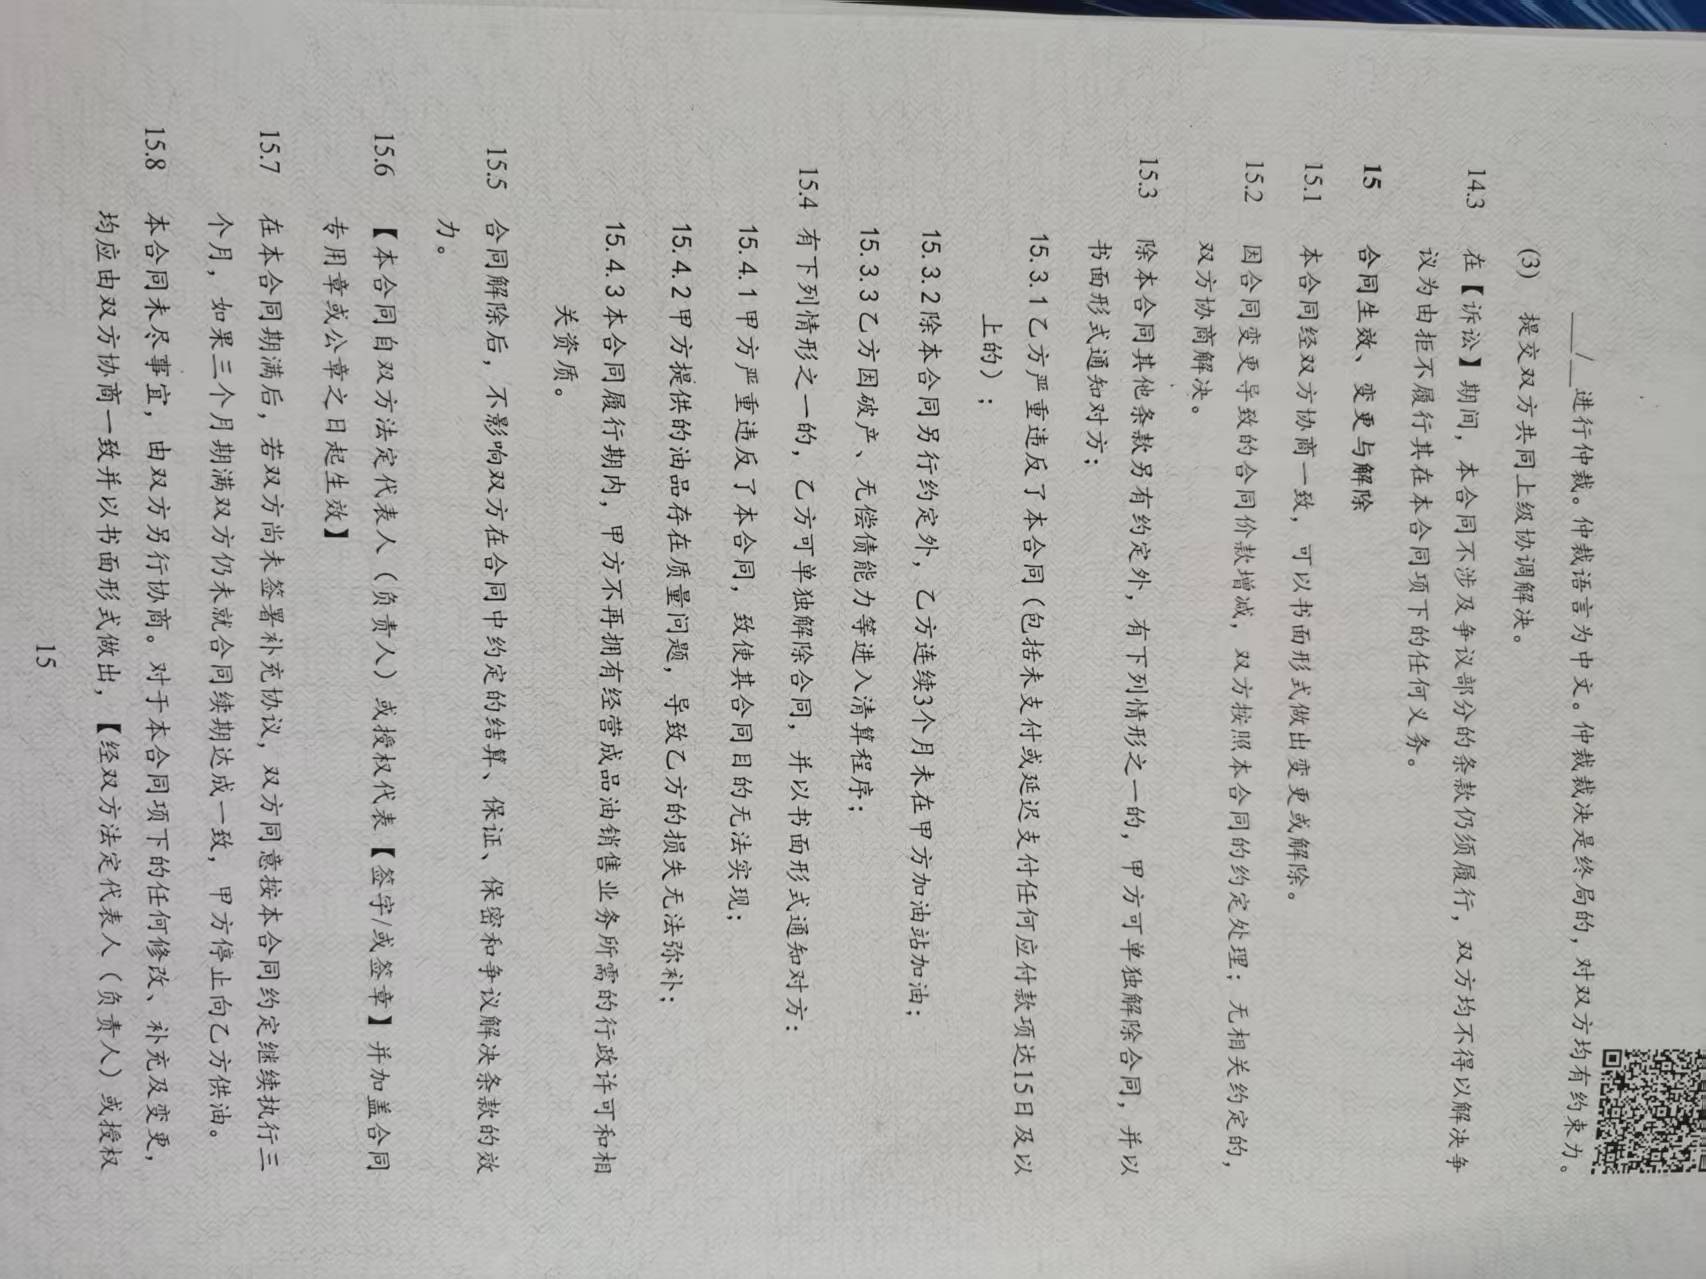 ___/__进行仲裁。仲裁语言为中文。仲裁裁决是终局的，对双方均有约束力。
(3) 提交双方共同上级协调解决。
14.3 在【诉讼】期间，本合同不涉及争议部分的条款仍须履行，双方均不得以解决争
议为由拒不履行其在本合同项下的任何义务。
15 合同生效、变更与解除
15.1 本合同经双方协商一致，可以书面形式做出变更或解除。
15.2 因合同变更导致的合同价款增减，双方按照本合同的约定处理；无相关约定的，
双方协商解决。
15.3 除本合同其他条款另有约定外，有下列情形之一的，甲方可单独解除合同，并以
书面形式通知对方：
15.3.1乙方严重违反了本合同（包括未支付或延迟支付任何应付款项达15日及以
上的）；
15.3.2除本合同另行约定外，乙方连续3个月未在甲方加油站加油；
15.3.3乙方因破产、无偿债能力等进入清算程序；
15.4 有下列情形之一的，乙方可单独解除合同，并以书面形式通知对方：
15.4.1甲方严重违反了本合同，致使其合同目的无法实现；
15.4.2甲方提供的油品存在质量问题，导致乙方的损失无法弥补；
15.4.3本合同履行期内，甲方不再拥有经营成品油销售业务所需的行政许可和相
关资质。
15.5 合同解除后，不影响双方在合同中约定的结算、保证、保密和争议解决条款的效
力。
15.6 【本合同自双方法定代表人（负责人）或授权代表【签字/或签章】并加盖合同
专用章或公章之日起生效】
15.7 在本合同期满后，若双方尚未签署补充协议，双方同意按本合同约定继续执行三
个月，如果三个月期满双方仍未就合同续期达成一致，甲方停止向乙方供油。
15.8 本合同未尽事宜，由双方另行协商。对于本合同项下的任何修改、补充及变更，
均应由双方协商一致并以书面形式做出，【经双方法定代表人（负责人）或授权
15